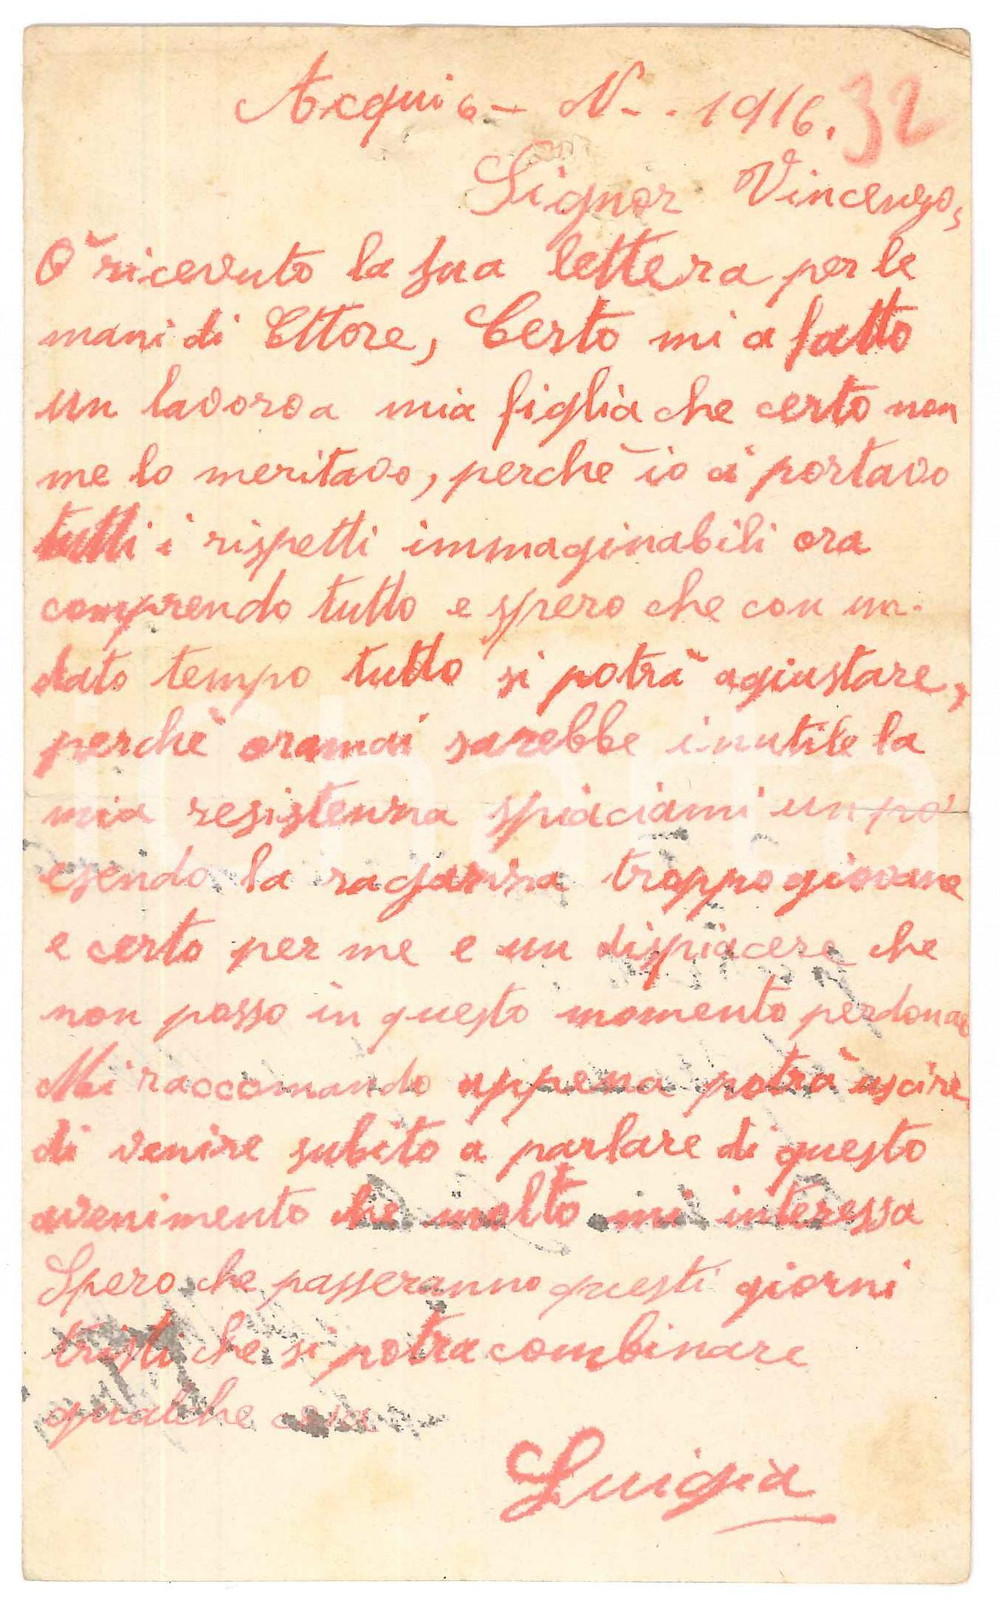 Acqui 6 - N - . 1916. 32
Signor Vincenzo,
O' ricevuto la sua lettera per le
mani di Ettore, Certo mi a fatto
un lavoro a mia figlia che certo non
me lo meritavo, perchè io ci portavo
tutti i rispetti immaginabili ora
comprendo tutto e spero che con un.
dato tempo tutto si potrà agiustare,
perchè oramai sarebbe inutile la
mia resistenza spiaciami un po'
esendo la raganza troppo giovane
e certo per me e un dispiacere che
non posso in questo momento perdonare
Mi raccomando appena potrà uscire
di venire subito a parlare di questo
avenimento che molto mi interessa
Spero che passeranno questi giorni
tristi che si potra combinare
qualche cosa
Luigia